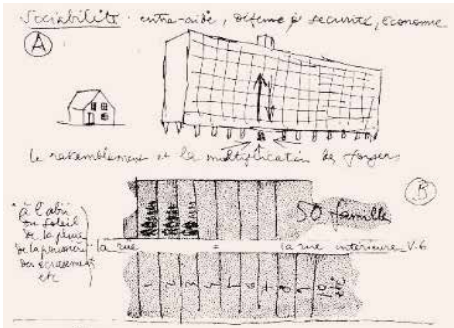 Sociabilité : entr-aide, défense & sécurité, économie
A
le rassemblement et la multiplication des foyers
B
"à l'abri
du soleil
de la pluie
de la poussière
des écrasements
etc
50 familles
la rue = la rue intérieure V.6